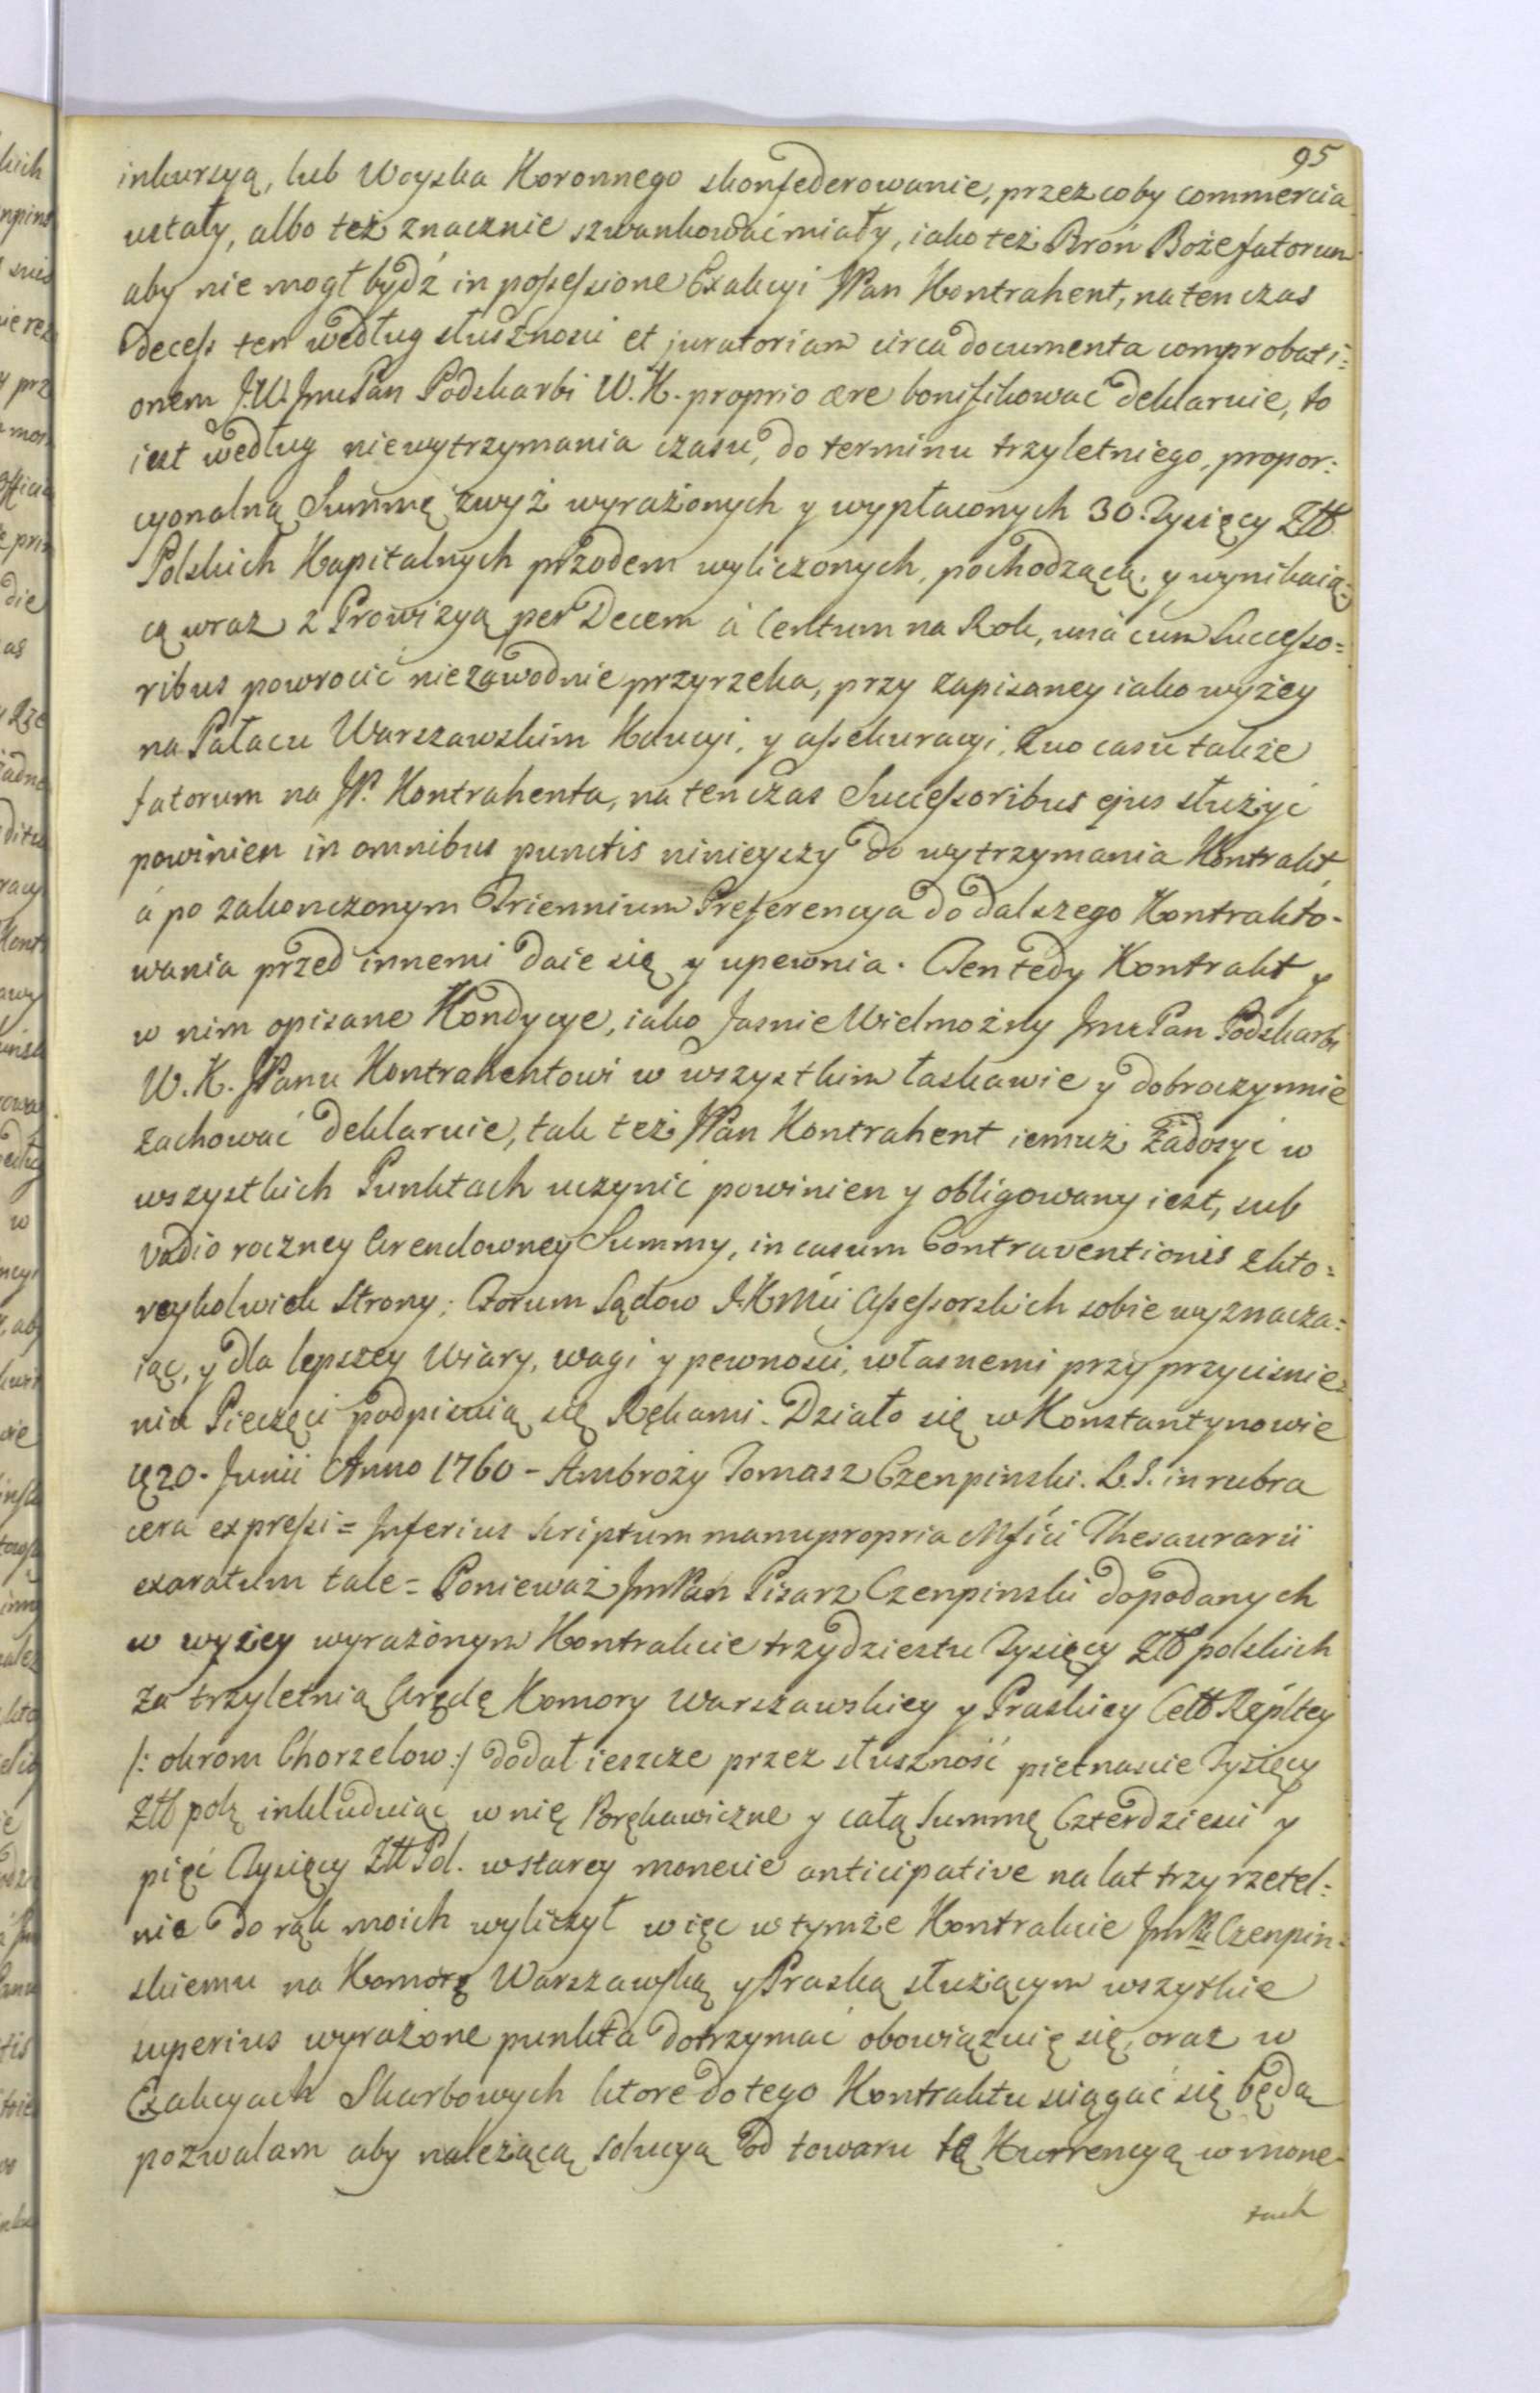 95
inkursyą, lub Woyska Koronnego skonfederowanie, przez coby commercia
ustały, albo też znacznie szwankować miały, iako też Broń Boże fatorum
aby nie mogł bydź in possessione Exakcyi JPan Kontrahent, na ten czas
decess ten według słusznosci et juratoriam circa documenta comprobati=
onem J.W. Jmc Pan Podskarbi W. K. proprio ære bonifikować deklaruie, to
iest według niewytrzymania czasu, do terminu trzyletniego, propor=
cyonalną Summę zwyż wyrażonych y wypłaconych 30. Tysięcy Złł
Polskich Kapitalnych przodem wyliczonych, pochodzącą, y wynikaią=
cą wraz z Prowizyą per Decem à Centum na Rok, unà cum Successo=
ribus powrocić niezawodnie przyrzeka, przy zapisaney iako wyżey
na Pałacu Warszawskim Kaucyi, y assekuracyi, Quo casu także
fatorum na JP. Kontrahenta, na ten czas Successoribus ejus służyć
powinien in omnibus punctis ninieyszy do wytrzymania Kontrakt,
á po zakonczonym Triennium Preferencya do dalszego Kontrakto-
wania przed innemi daie się y upewnia. Ten tedy Kontrakt y
w nim opisane Kondycye, iako Jasnie Wielmożny Jmc Pan Podskarbi
W. K. JPanu Kontrahentowi w wszystkim łaskawie y dobroczynnie
zachować deklaruie, tak też JPan Kontrahent iemuż Zadosyć w
wszystkich Punktach uczynić powinien y obligowany iest, sub
vadio roczney Arendowney Summy, in casum Contraventionis z kto=
reykolwiek Strony; Forum Sądow J.K.Mći Assessorskich sobie wyznacza=
iąc, y dla lepszey Wiary, wagi y pewnosci, własnemi przy przycisnie=
niu Pieczęci podpisuią się Rękami. Działo się w Konstantynowie
20. Junii Anno 1760 - Ambroży Tomasz Czenpinski. L.S. in rubra
cera expressi = Inferius scriptum manu propria Mffici Thesaurarii
exaratum tale = Ponieważ JmPan Pisarz Czenpinski do podanych
w wyżey wyrażonym Kontrakcie trzydziestu Tysięcy Złł polskich
za trzyletnią Arędę Komory Warszawskiey y Praskiey Cełł Rzpltey
/: okrom Chorzelow :/ dodał ieszcze przez słuszność pietnascie Tysięcy
Złł polz inkluduiąc w nię Porękawiczne y całą Summę Czterdziesci y
pięć Tysięcy Złł Pol. w starey monecie anticipative na lat trzy rzetel=
nie do rąk moich wyliczył więc w tymże Kontrakcie JmPu Czenpin=
skiemu na Komorę Warszawską y Praską służącym wszystkie
superius wyrażone punkta dotrzymać obowiązuię się, oraz w
Exakcyach Skarbowych ktore do tego Kontraktu sciągać się będą
pozwalam aby należącą solucyą od towaru tą Kurrencyą w mone-
tach